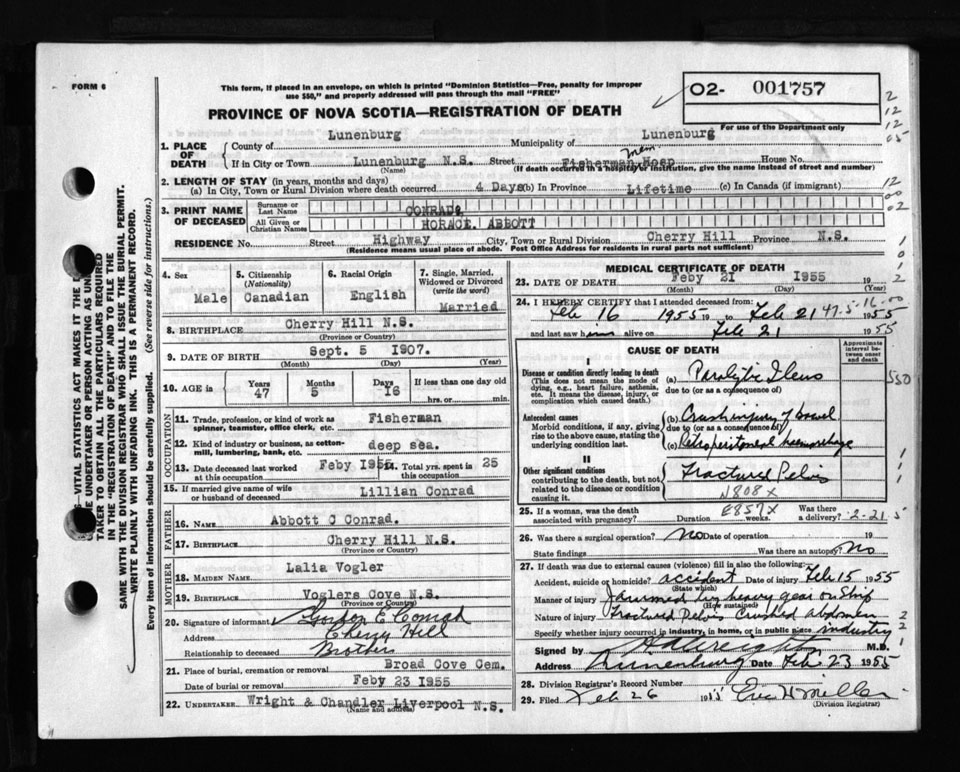 FORM 6
This form, if placed in an envelope, on which is printed "Dominion Statistics—Free, penalty for improper
use $50," and properly addressed will pass through the mail "FREE"
PROVINCE OF NOVA SCOTIA—REGISTRATION OF DEATH
O2- 001757
For use of the Department only
1. PLACE OF DEATH
County of Lunenburg Municipality of Lunenburg
If in City or Town Lunenburg N.S. Street Fisherman Mem Hosp House No.
(Name) (If death occurred in a hospital or institution, give the name instead of street and number)
2. LENGTH OF STAY (in years, months and days)
(a) In City, Town or Rural Division where death occurred 4 Days (b) In Province Lifetime (c) In Canada (if immigrant)
3. PRINT NAME OF DECEASED
Surname or Last Name CONRAD,
All Given or Christian Names HORACE ABBOTT
RESIDENCE No. Street Highway City, Town or Rural Division Cherry Hill Province N.S.
(Residence means usual place of abode. Post Office Address for residents in rural parts not sufficient)
4. Sex Male
5. Citizenship (Nationality) Canadian
6. Racial Origin English
7. Single, Married, Widowed or Divorced (write the word) Married
8. BIRTHPLACE Cherry Hill N.S.
(Province or Country)
9. DATE OF BIRTH Sept. 5 1907.
(Month) (Day) (Year)
10. AGE in Years 47 Months 5 Days 16 If less than one day old hrs. or min.
OCCUPATION
11. Trade, profession, or kind of work as spinner, teamster, office clerk, etc. Fisherman
12. Kind of industry or business, as cotton-mill, lumbering, bank, etc. deep sea.
13. Date deceased last worked at this occupation Feby 1955
14. Total yrs. spent in this occupation 25
15. If married give name of wife or husband of deceased Lillian Conrad
FATHER
16. NAME Abbott C Conrad.
17. BIRTHPLACE Cherry Hill N.S.
(Province or Country)
MOTHER
18. MAIDEN NAME Lalia Vogler
19. BIRTHPLACE Voglers Cove N.S.
(Province or Country)
20. Signature of informant Gordon E Conrad
Address Cherry Hill
Relationship to deceased Brother
21. Place of burial, cremation or removal Broad Cove Cem.
Date of burial or removal Feby 23 1955
22. UNDERTAKER Wright & Chandler Liverpool N.S.
(Name and address)
MEDICAL CERTIFICATE OF DEATH
23. DATE OF DEATH Feby 21 1955 19
(Month) (Day) (Year)
24. I HEREBY CERTIFY that I attended deceased from:
Feb 16 1955 19 to Feb 21 1955
and last saw h im alive on Feb 21 1955
CAUSE OF DEATH
Approximate interval between onset and death
I
Disease or condition directly leading to death
(This does not mean the mode of dying, e.g., heart failure, asthenia, etc. It means the disease, injury, or complication which caused death.)
(a) Paralytic Ileus
due to (or as a consequence of)
Antecedent causes
Morbid conditions, if any, giving rise to the above cause, stating the underlying condition last.
(b) Crush injury of bowel
due to (or as a consequence of)
(c) Retroperitoneal haemorrhage
II
Other significant conditions
contributing to the death, but not related to the disease or condition causing it.
Fractured Pelvis
N808X
E857X
25. If a woman, was the death associated with pregnancy? Duration weeks. Was there a delivery?
2-21-5
26. Was there a surgical operation? No Date of operation 19
State findings Was there an autopsy? No
27. If death was due to external causes (violence) fill in also the following:
Accident, suicide or homicide? accident Date of injury Feb 15 1955
(State which)
Manner of injury Jammed by heavy gear on ship
(How sustained)
Nature of injury Fractured Pelvis crushed abdomen
Specify whether injury occurred in industry, in home, or in public place industry
Signed by M.D.
Address Lunenburg Date Feb 23 1955
28. Division Registrar's Record Number
29. Filed Feb 26 1955 Eric H Miller
(Division Registrar)
VITAL STATISTICS ACT MAKES IT THE
UNDERTAKER OR PERSON ACTING AS UND
TAKER TO OBTAIN ALL THE PARTICULARS REQUIRED
IN THE "REGISTRATION OF DEATH" AND TO FILE THE
SAME WITH THE DIVISION REGISTRAR WHO SHALL ISSUE THE BURIAL PERMIT.
WRITE PLAINLY WITH UNFADING INK. THIS IS A PERMANENT RECORD.
Every item of information should be carefully supplied. (See reverse side for instructions.)